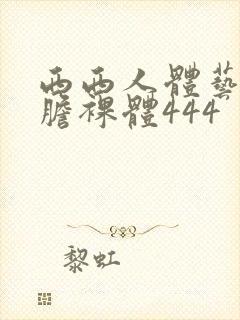 西西人體藝
膽裸體444
黎虹